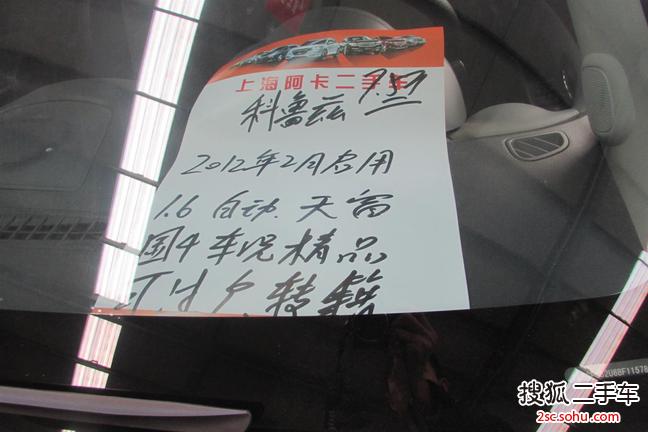 上海阿卡二手车
科鲁兹
2012年2月启用
1.6 自动.天窗
国4车况精品
可过户.转籍
搜狐二手车
2sc.sohu.com